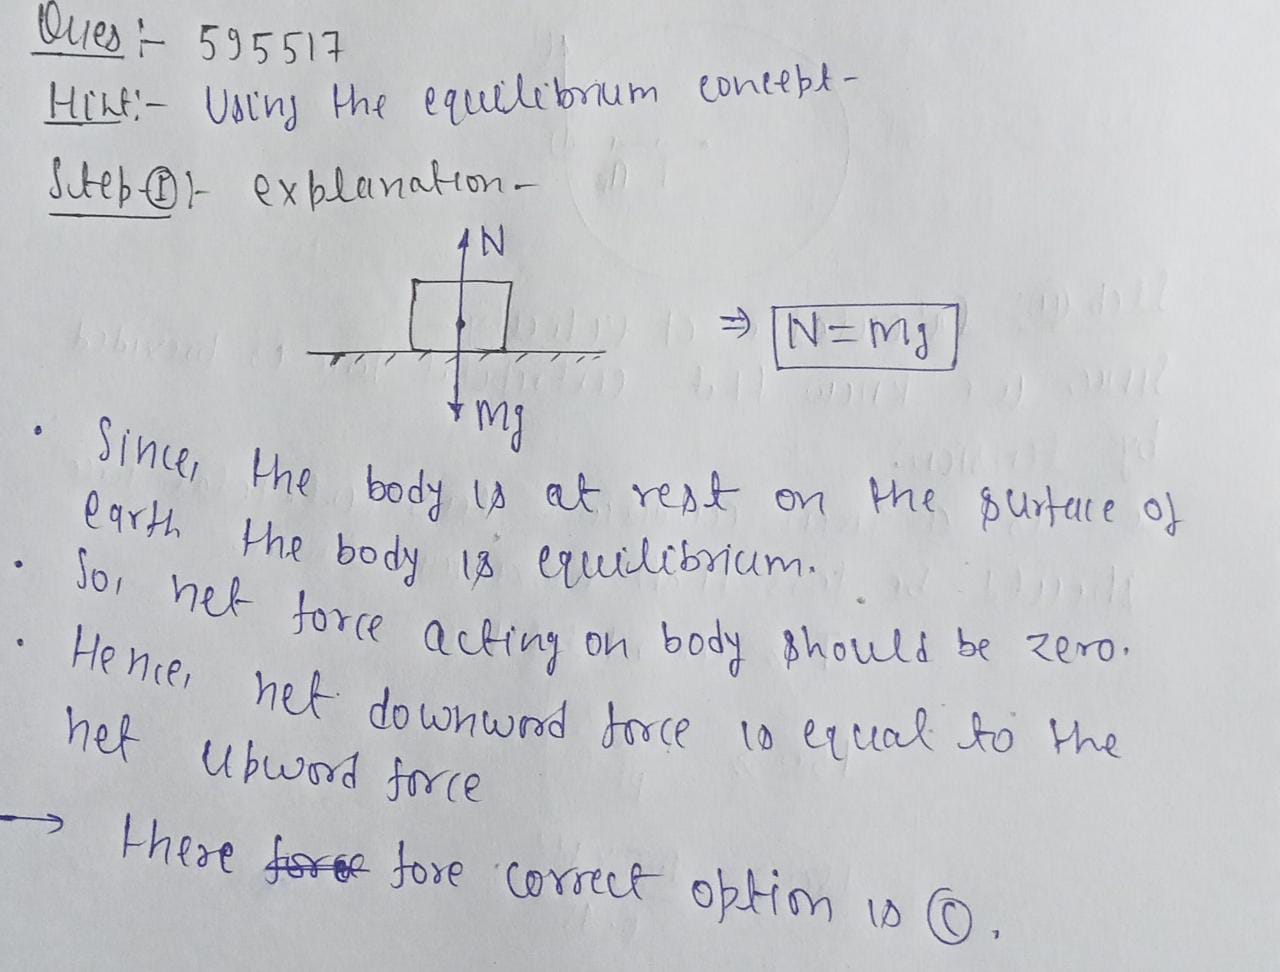 Ques :- 595517
Hint:- Using the equilibrium concept-
Step-①:- explanation-
N
⇒ N=mg
mg
• Since, the body is at rest on the surface of
earth the body is equilibrium.
• So, net force acting on body should be zero.
• Hence, net downword force is equal to the
net upword force
→ there fore correct option is ©.